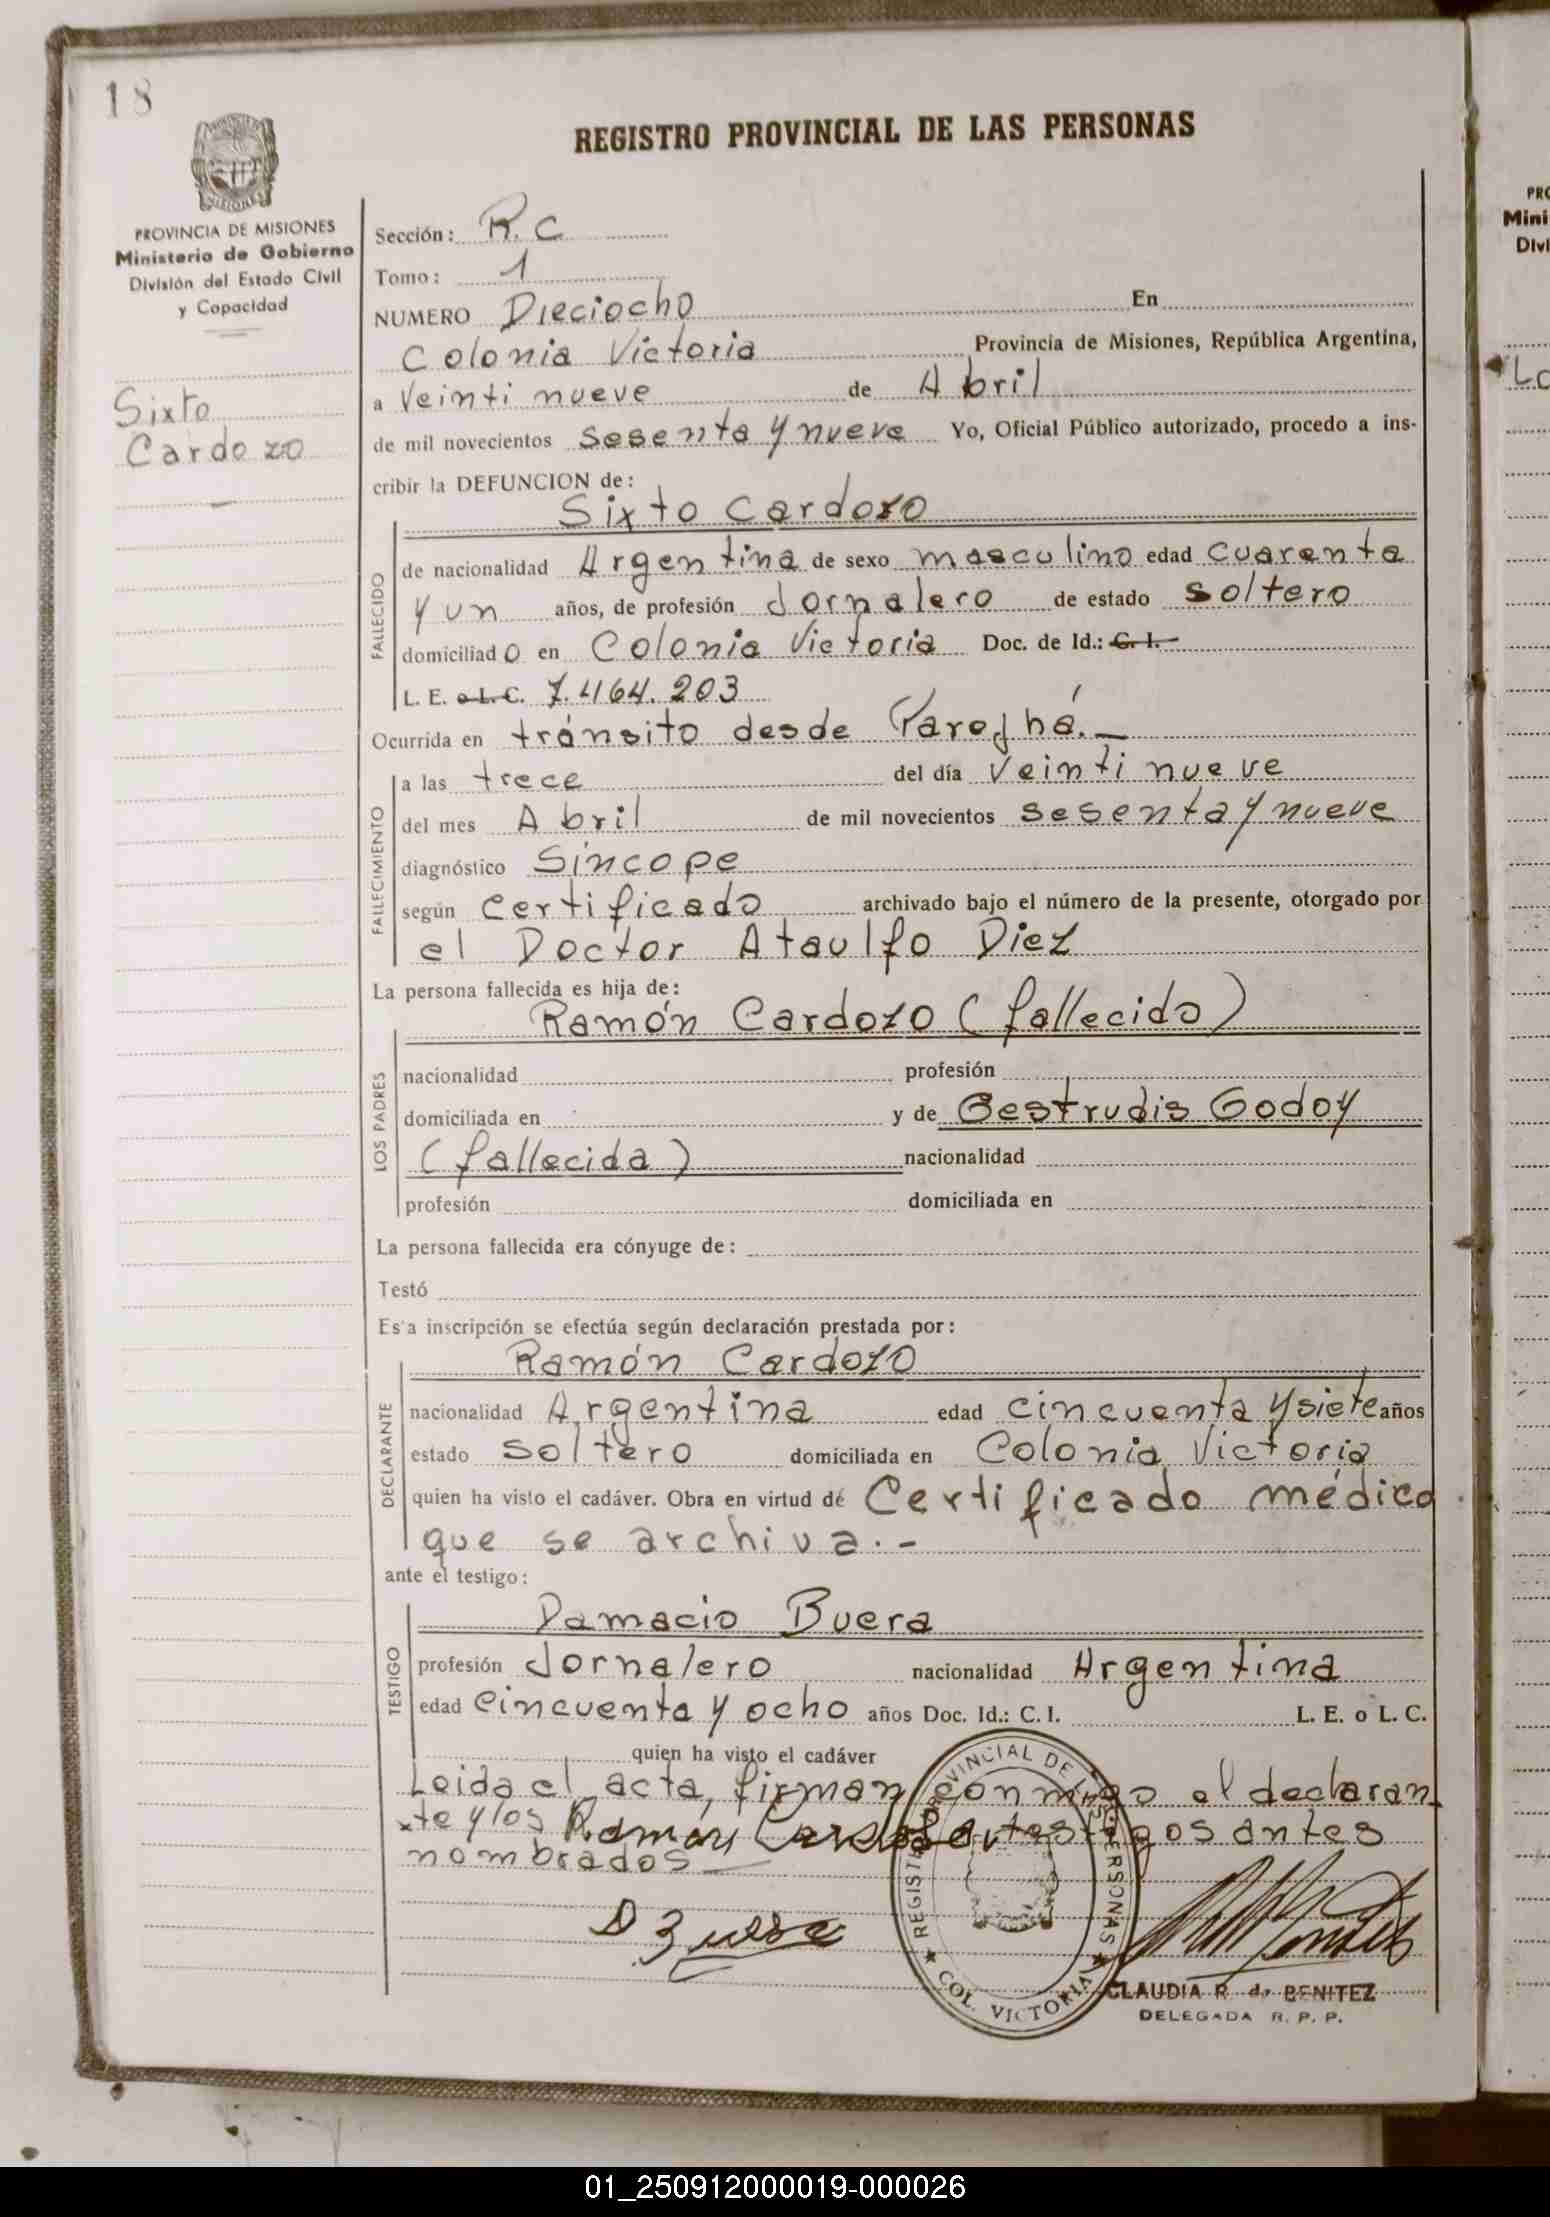 18
REGISTRO PROVINCIAL DE LAS PERSONAS
PROVINCIA DE MISIONES
Ministerio de Gobierno
División del Estado Civil
y Capacidad
Sixto
Cardozo
Sección: R. C
Tomo: 1
NUMERO Dieciocho En
Colonia Victoria Provincia de Misiones, República Argentina,
a Veinti nueve de Abril
de mil novecientos sesenta y nueve Yo, Oficial Público autorizado, procedo a ins-
cribir la DEFUNCION de:
Sixto Cardozo
FALLECIDO
de nacionalidad Argentina de sexo masculino edad cuarenta
y un años, de profesión Jornalero de estado soltero
domiciliado en Colonia Victoria Doc. de Id.: C. I.
L. E. o L. C. 7.464.203
Ocurrida en tránsito desde Parejhá.
FALLECIMIENTO
a las trece del día Veinti nueve
del mes Abril de mil novecientos sesenta y nueve
diagnóstico Síncope
según certificado archivado bajo el número de la presente, otorgado por
el Doctor Ataulfo Diez
La persona fallecida es hija de:
Ramón Cardozo (fallecido)
LOS PADRES
nacionalidad profesión
domiciliada en y de Gestrudis Godoy
(fallecida) nacionalidad
profesión domiciliada en
La persona fallecida era cónyuge de:
Testó
Es'a inscripción se efectúa según declaración prestada por:
Ramón Cardozo
DECLARANTE
nacionalidad Argentina edad cincuenta y siete años
estado soltero domiciliada en Colonia Victoria
quien ha visto el cadáver. Obra en virtud de Certificado médico
que se archiva.-
ante el testigo:
Damacio Buera
TESTIGO
profesión Jornalero nacionalidad Argentina
edad cincuenta y ocho años Doc. Id.: C. I. L. E. o L. C.
quien ha visto el cadáver
Leida el acta, firman conmigo el declaran
te y los testigos antes
nombrados
Ramon Cardozo
D Buera
REGISTRO PROVINCIAL DE LAS PERSONAS
COL. VICTORIA
CLAUDIA R. de BENITEZ
DELEGADA R. P. P.
PRO
Mini
Divi
Lo
01_250912000019-000026